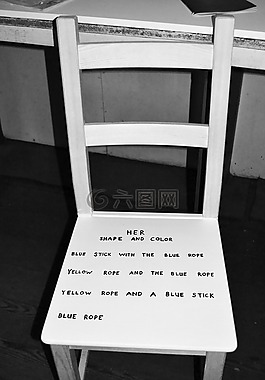 六图网
HER
SHAPE AND COLOR
BLUE STICK WITH THE BLUE ROPE
YELLOW ROPE AND THE BLUE ROPE
YELLOW ROPE AND A BLUE STICK
BLUE ROPE